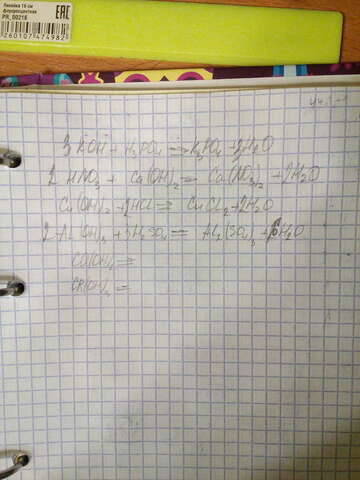 Линейка 15 см
флуоресцентная
PR_00216
EAC
2601074749821
3 KOH + H3PO4 = K3PO4 + 3H2O
2 HNO3 + Ca(OH)2 = Ca(NO3)2 + 2H2O
Cu(OH)2 + 2HCl = CuCl2 + 2H2O
2 Al(OH)3 + 3H2SO4 = Al2(SO4)3 + 6H2O
=
=